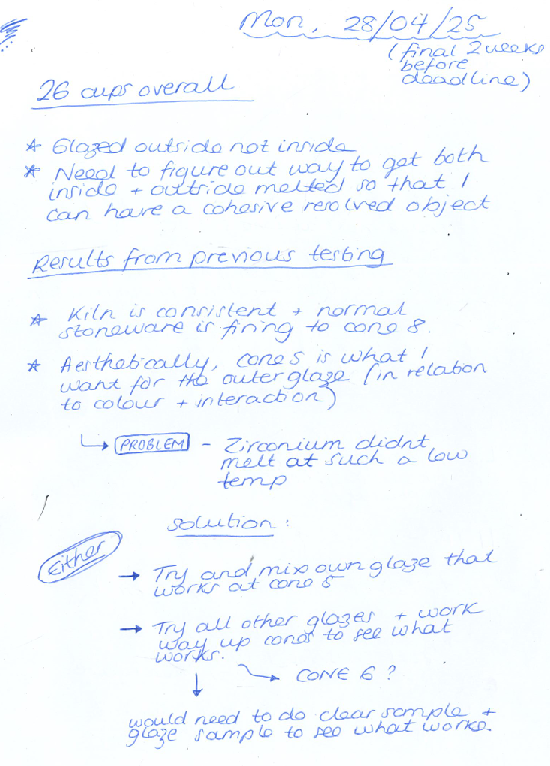 Mon, 28/04/25
(final 2 weeks
before
deadline)
26 cups overall
* Glazed outside not inside
* Need to figure out way to get both
inside + outside melted so that I
can have a cohesive resolved object
Results from previous testing
* Kiln is consistent + normal
stoneware is firing to cone 8.
* Aesthetically, cone 5 is what I
want for the outer glaze (in relation
to colour + interaction)
PROBLEM - Zirconium didnt
melt at such a low
temp
Solution:
Either
→ Try and mix own glaze that
works at cone 5
→ Try all other glazes + work
way up cones to see what
works.
→ CONE 6?
would need to do clear sample +
glaze sample to see what works.